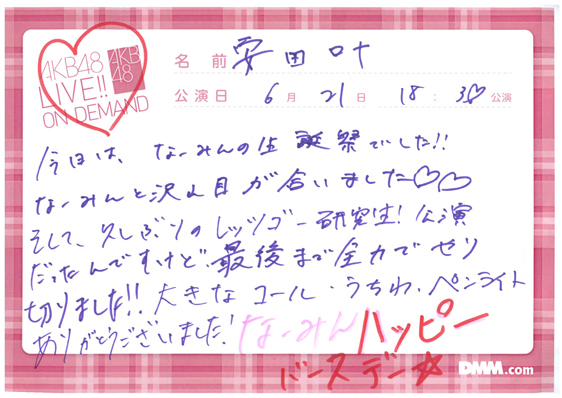 AKB48
LIVE!!
ON DEMAND
AKB
48
名前 安田叶
公演日 6月 21日 18:30 公演
今日は、なーみんの生誕祭でした!!
なーみんと沢山目が合いました♡♡
そして、久しぶりのレッツゴー研究生!公演
だったんですけど、最後まで全力でやり
切りました!!大きなコール・うちわ・ペンライト
ありがとうございました!
なーみんハッピー
バースデー☆
DMM.com